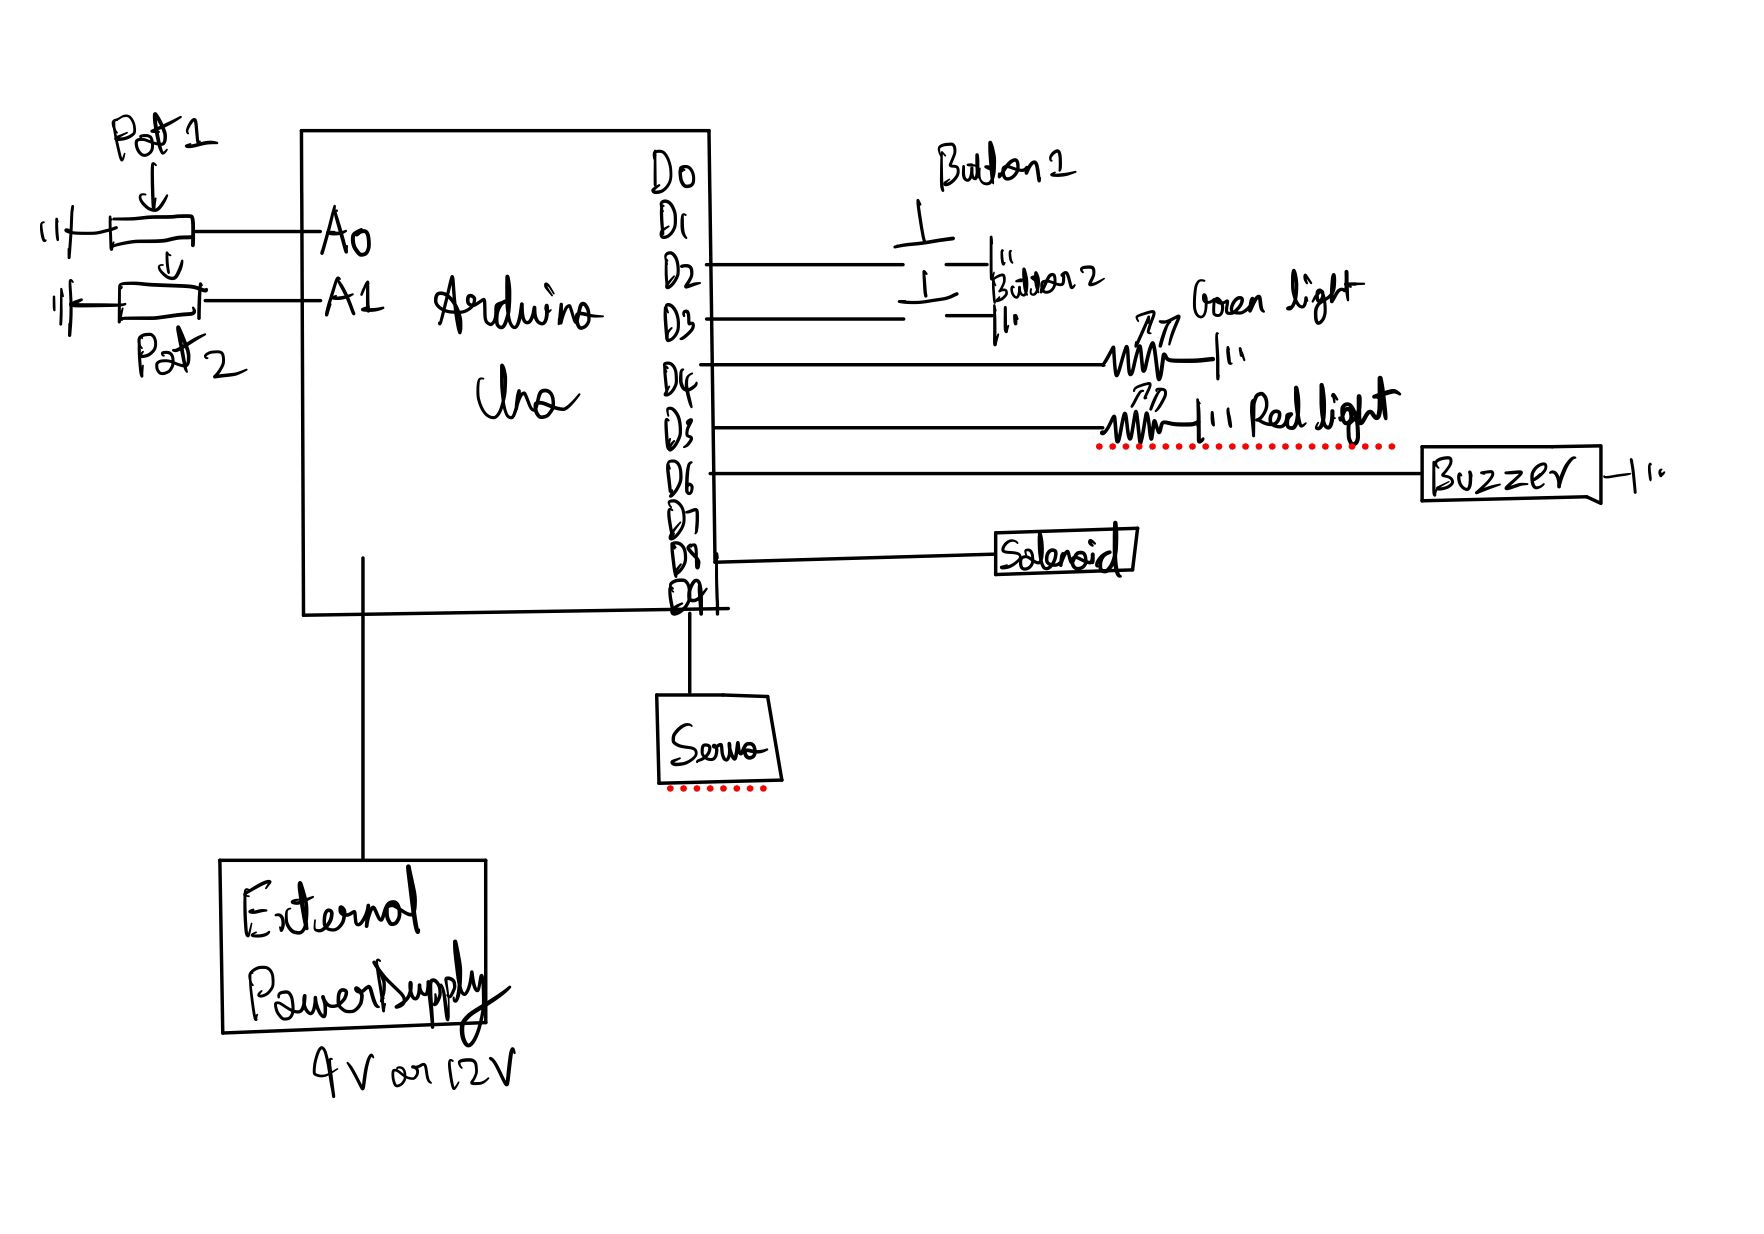 Pot 1
A0
A1
Pot 2
Arduino
Uno
D0
D1
D2
D3
D4
D5
D6
D7
D8
D9
Button 1
Button 2
Green light
Red light
Buzzer
Solenoid
Servo
External
Power Supply
9V or 12V